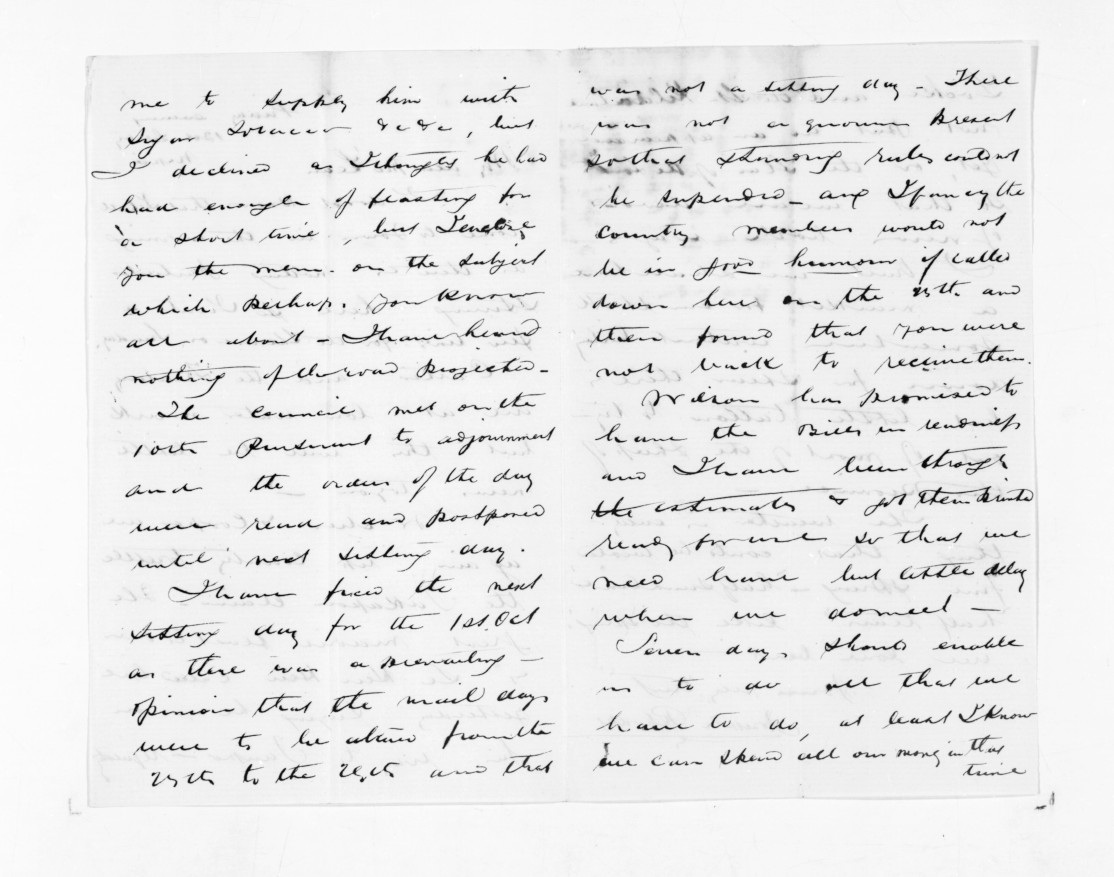 me to supply him with
Sugar Tobacco &c &c, but
I declined as I thought he had
had enough of feasting for
a short time, but I enclose
you the memo. on the subject
which perhaps you know
all about - I have heard
nothing of the road projected -
The Council met on the
10th pursuant to adjournment
and the orders of the day
were read and postponed
until next sitting day.
I have fixed the next
sitting day for the 1st Oct
as there was a prevailing -
opinion that the mail days
were to be altered from the
to the and that
was not a sitting day - There
was not a quorum present
so that standing rules could not
be suspended - and I fancy the
country members would not
be in good humour if called
down here on the 25th and
then found that you were
not back to receive them.
Wilson has promised to
have the Bills in readiness
and I have been through
the estimates & got them printed
ready for use so that we
need have but little delay
when we do meet -
Seven days should enable
us to do all that we
have to do, at least I know
we can spend all our money in that
time